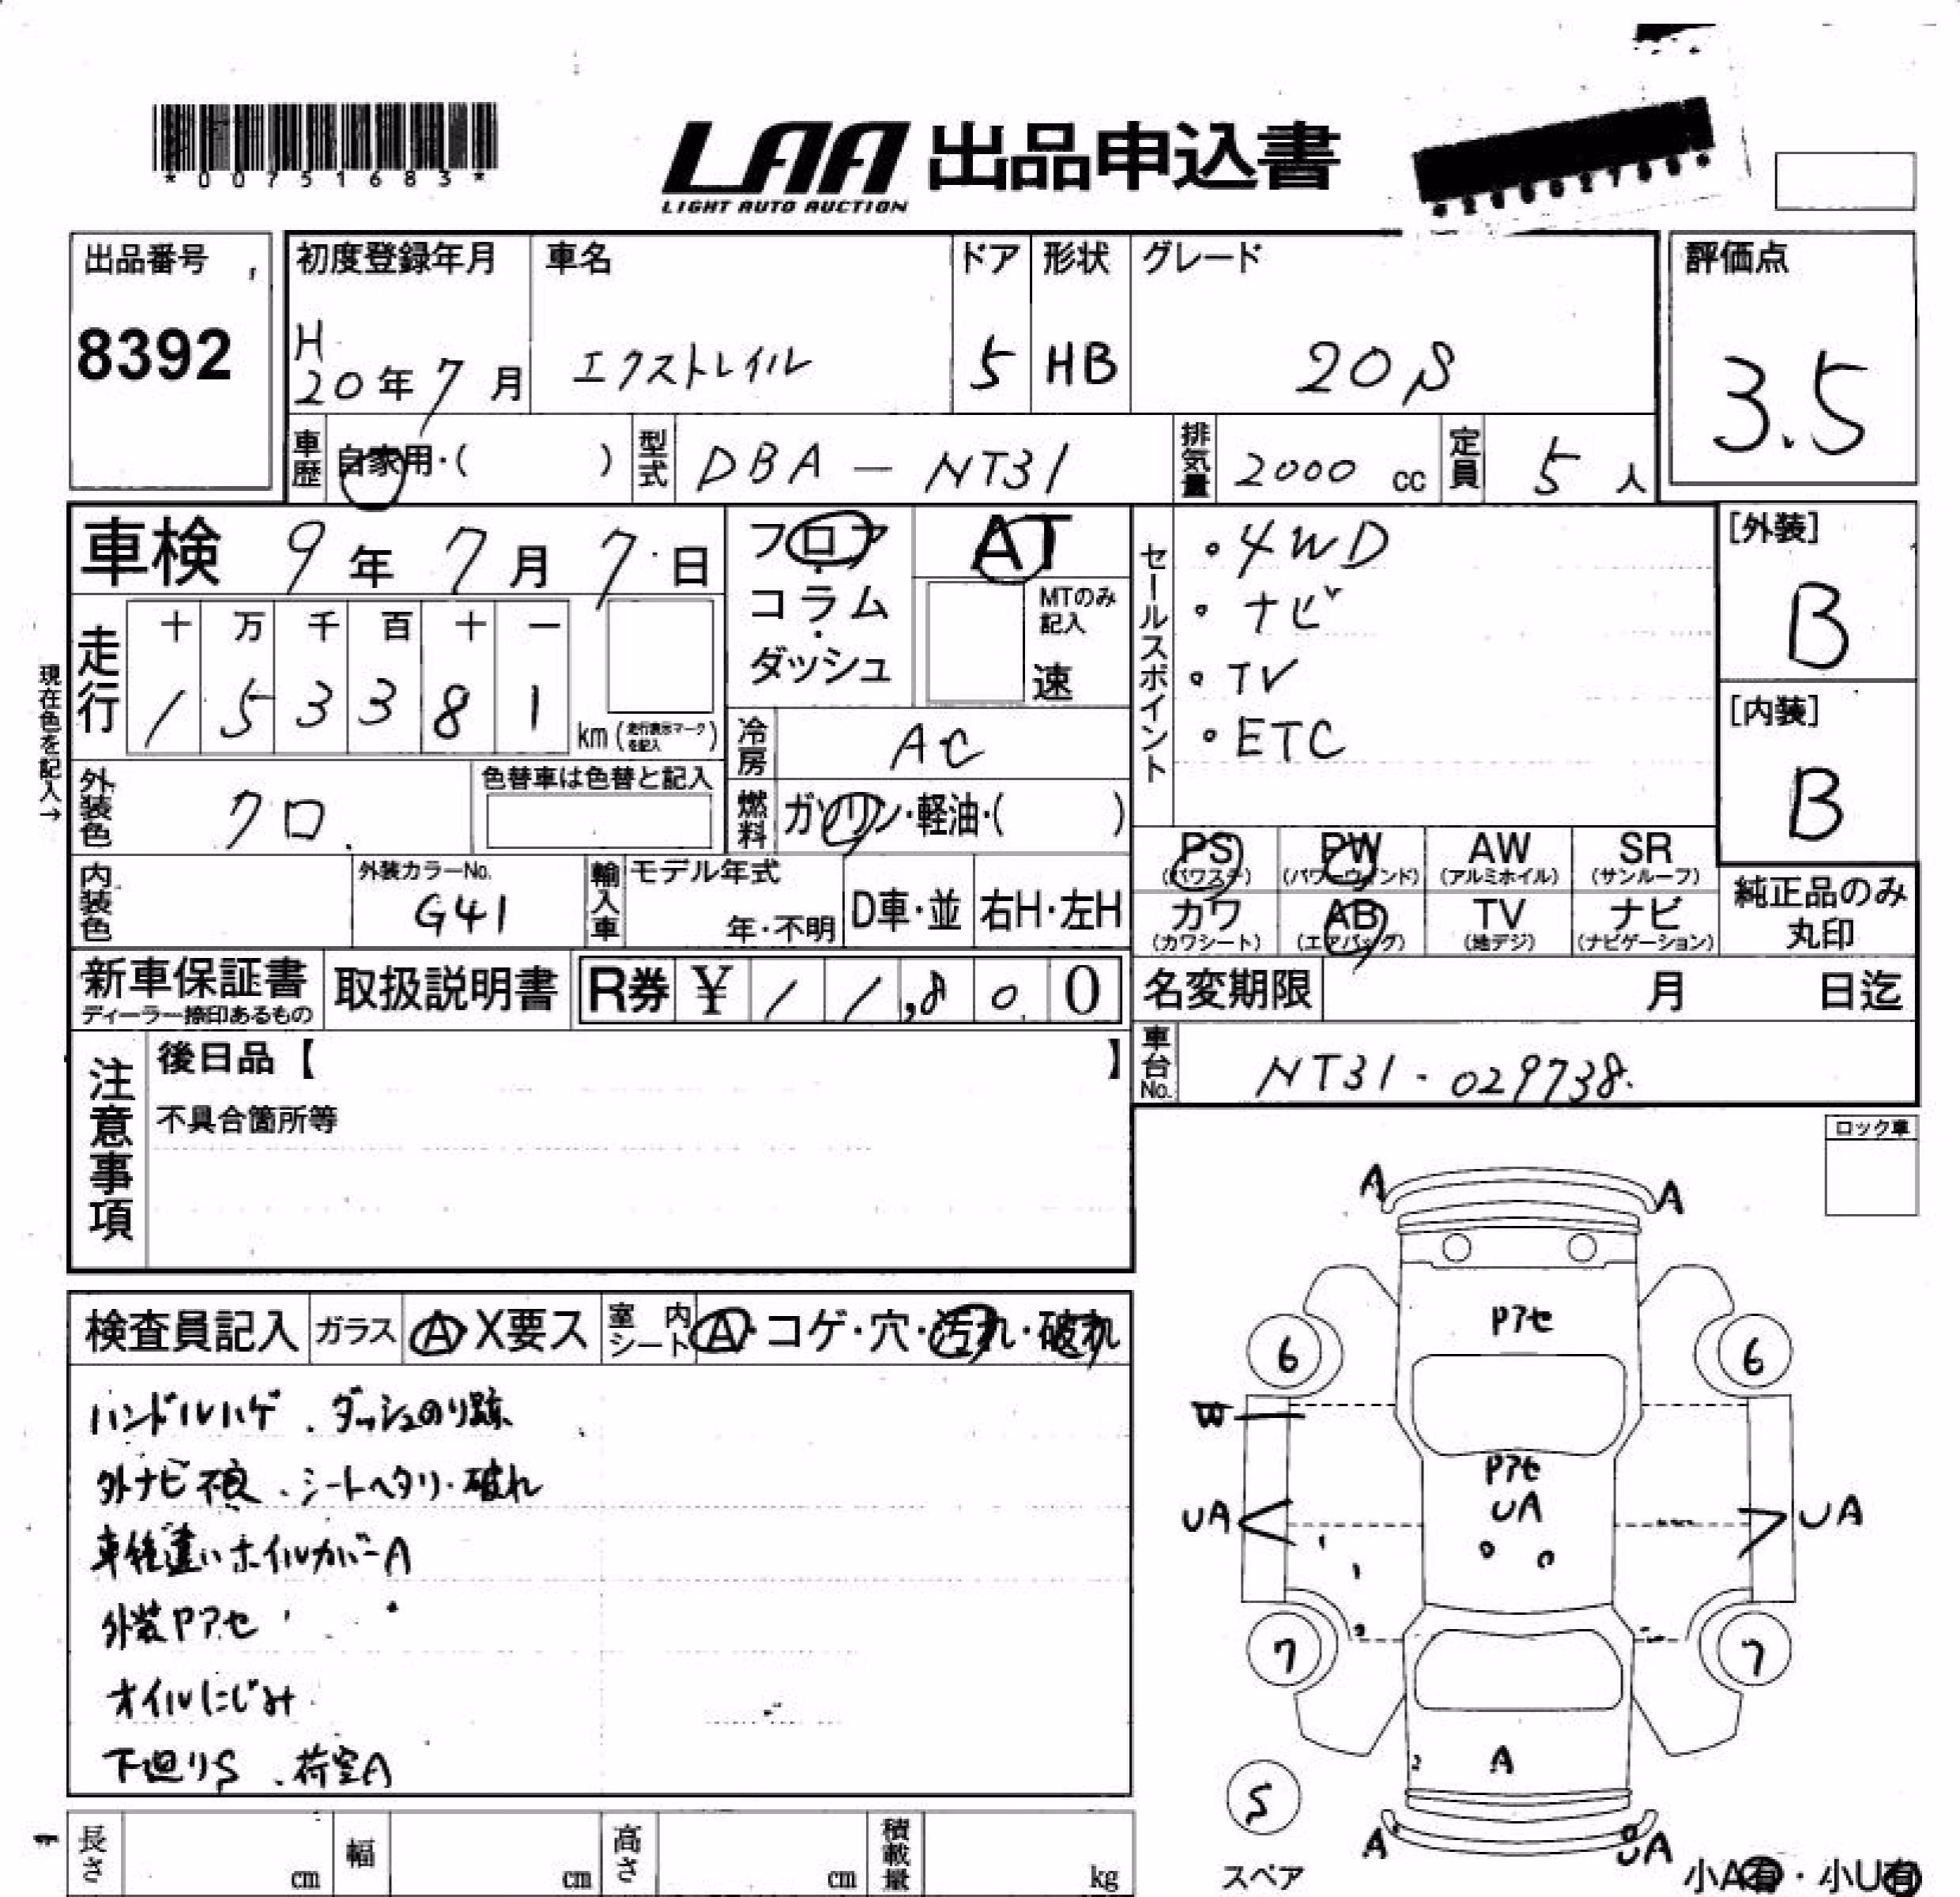 *00751683*
LAA 出品申込書
LIGHT AUTO AUCTION
出品番号
8392
初度登録年月 車名 ドア 形状 グレード 評価点
H
20年7月 エクストレイル 5 HB 20S 3.5
車歴 自家用・( ) 型式 DBA-NT31 排気量 2000 cc 定員 5人
車検 9年7月7日
フロア・コラム・ダッシュ
AT
MTのみ記入
速
セールスポイント
・4WD
・ナビ
・TV
・ETC
[外装]
B
[内装]
B
現在色を記入→
走行
十 万 千 百 十 一
1 5 3 3 8 1
km(走行表示マークを記入)
冷房 AC
外装色 クロ
色替車は色替と記入
燃料 ガソリン・軽油・( )
内装色
外装カラーNo.
G41
輸入車 モデル年式
年・不明 D車・並 右H・左H
PS PW AW SR
(パワステ) (パワーウィンド) (アルミホイル) (サンルーフ)
カワ AB TV ナビ
(カワシート) (エアバッグ) (地デジ) (ナビゲーション)
純正品のみ
丸印
新車保証書
ディーラー捺印あるもの
取扱説明書 R券 ¥ 11,800
名変期限 月 日迄
注意事項
後日品【 】
不具合箇所等
車台No. NT31-029738.
ロック車
検査員記入 ガラス A・X要ス 室内シート A・コゲ・穴・汚れ・破れ
ハンドルハゲ、ダッシュのり跡
外ナビ不良、シートヘタリ・破れ
車種違いホイルカバーA
外装Pアセ
オイルにじみ
下廻りS、荷室A
A A
Pアセ
6 6
W
Pアセ
UA UA UA
7 7
A
S
A UA
スペア
小A有・小U有
長さ cm 幅 cm 高さ cm 積載量 kg